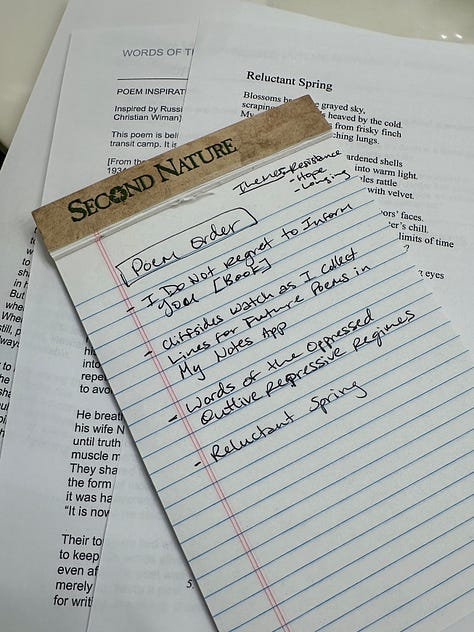 WORDS OF T
POEM INSPIRAT
Inspired by Russi
Christian Wiman)
This poem is beli
transit camp. It is
[From the
1934
Reluctant Spring
Blossoms grayed sky,
scraping
My heaved by the cold.
from frisky finch
ching lungs.
ardened shells
into warm light.
les rattle
with velvet.
ors' faces.
er's chill.
limits of time
?
ng eyes
SECOND NATURE
Themes - Resistance
- Hope
- Longing
Poem Order
- I Do Not Regret to Inform
You [Book]
- Cliffsides Watch as I Collect
Lines for Future Poems in
My Notes App
- Words of the Oppressed
Outlive Repressive Regimes
- Reluctant Spring
into
repe
to avo
He breat
his wife N
until truth
muscle m
They sha
the form
it was ha
"It is now
Their to
to keep
even af
merely
for writ
5
in
But
whe
Whe
still, p
lways